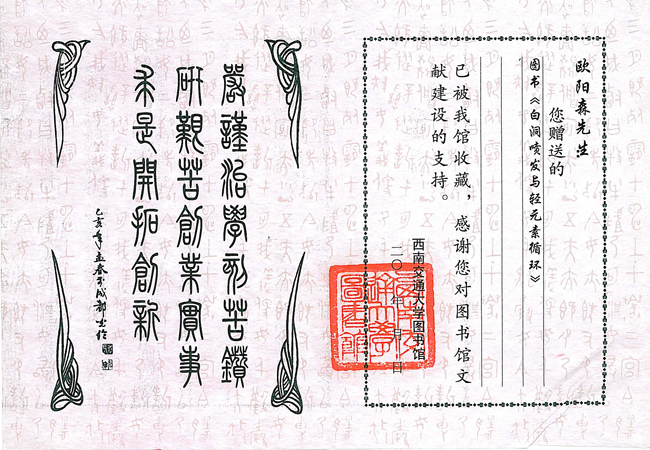 欧阳森先生
您赠送的
图书《白洞喷发与轻元素循环》
已被我馆收藏，感谢您对图书馆文
献建设的支持。
西南交通大学图书馆
二〇 年 月 日
西南交
通大學
圖書館
嚴謹治學刻苦鑽
研艱苦創業實事
求是開拓創新
乙亥年立春于成都